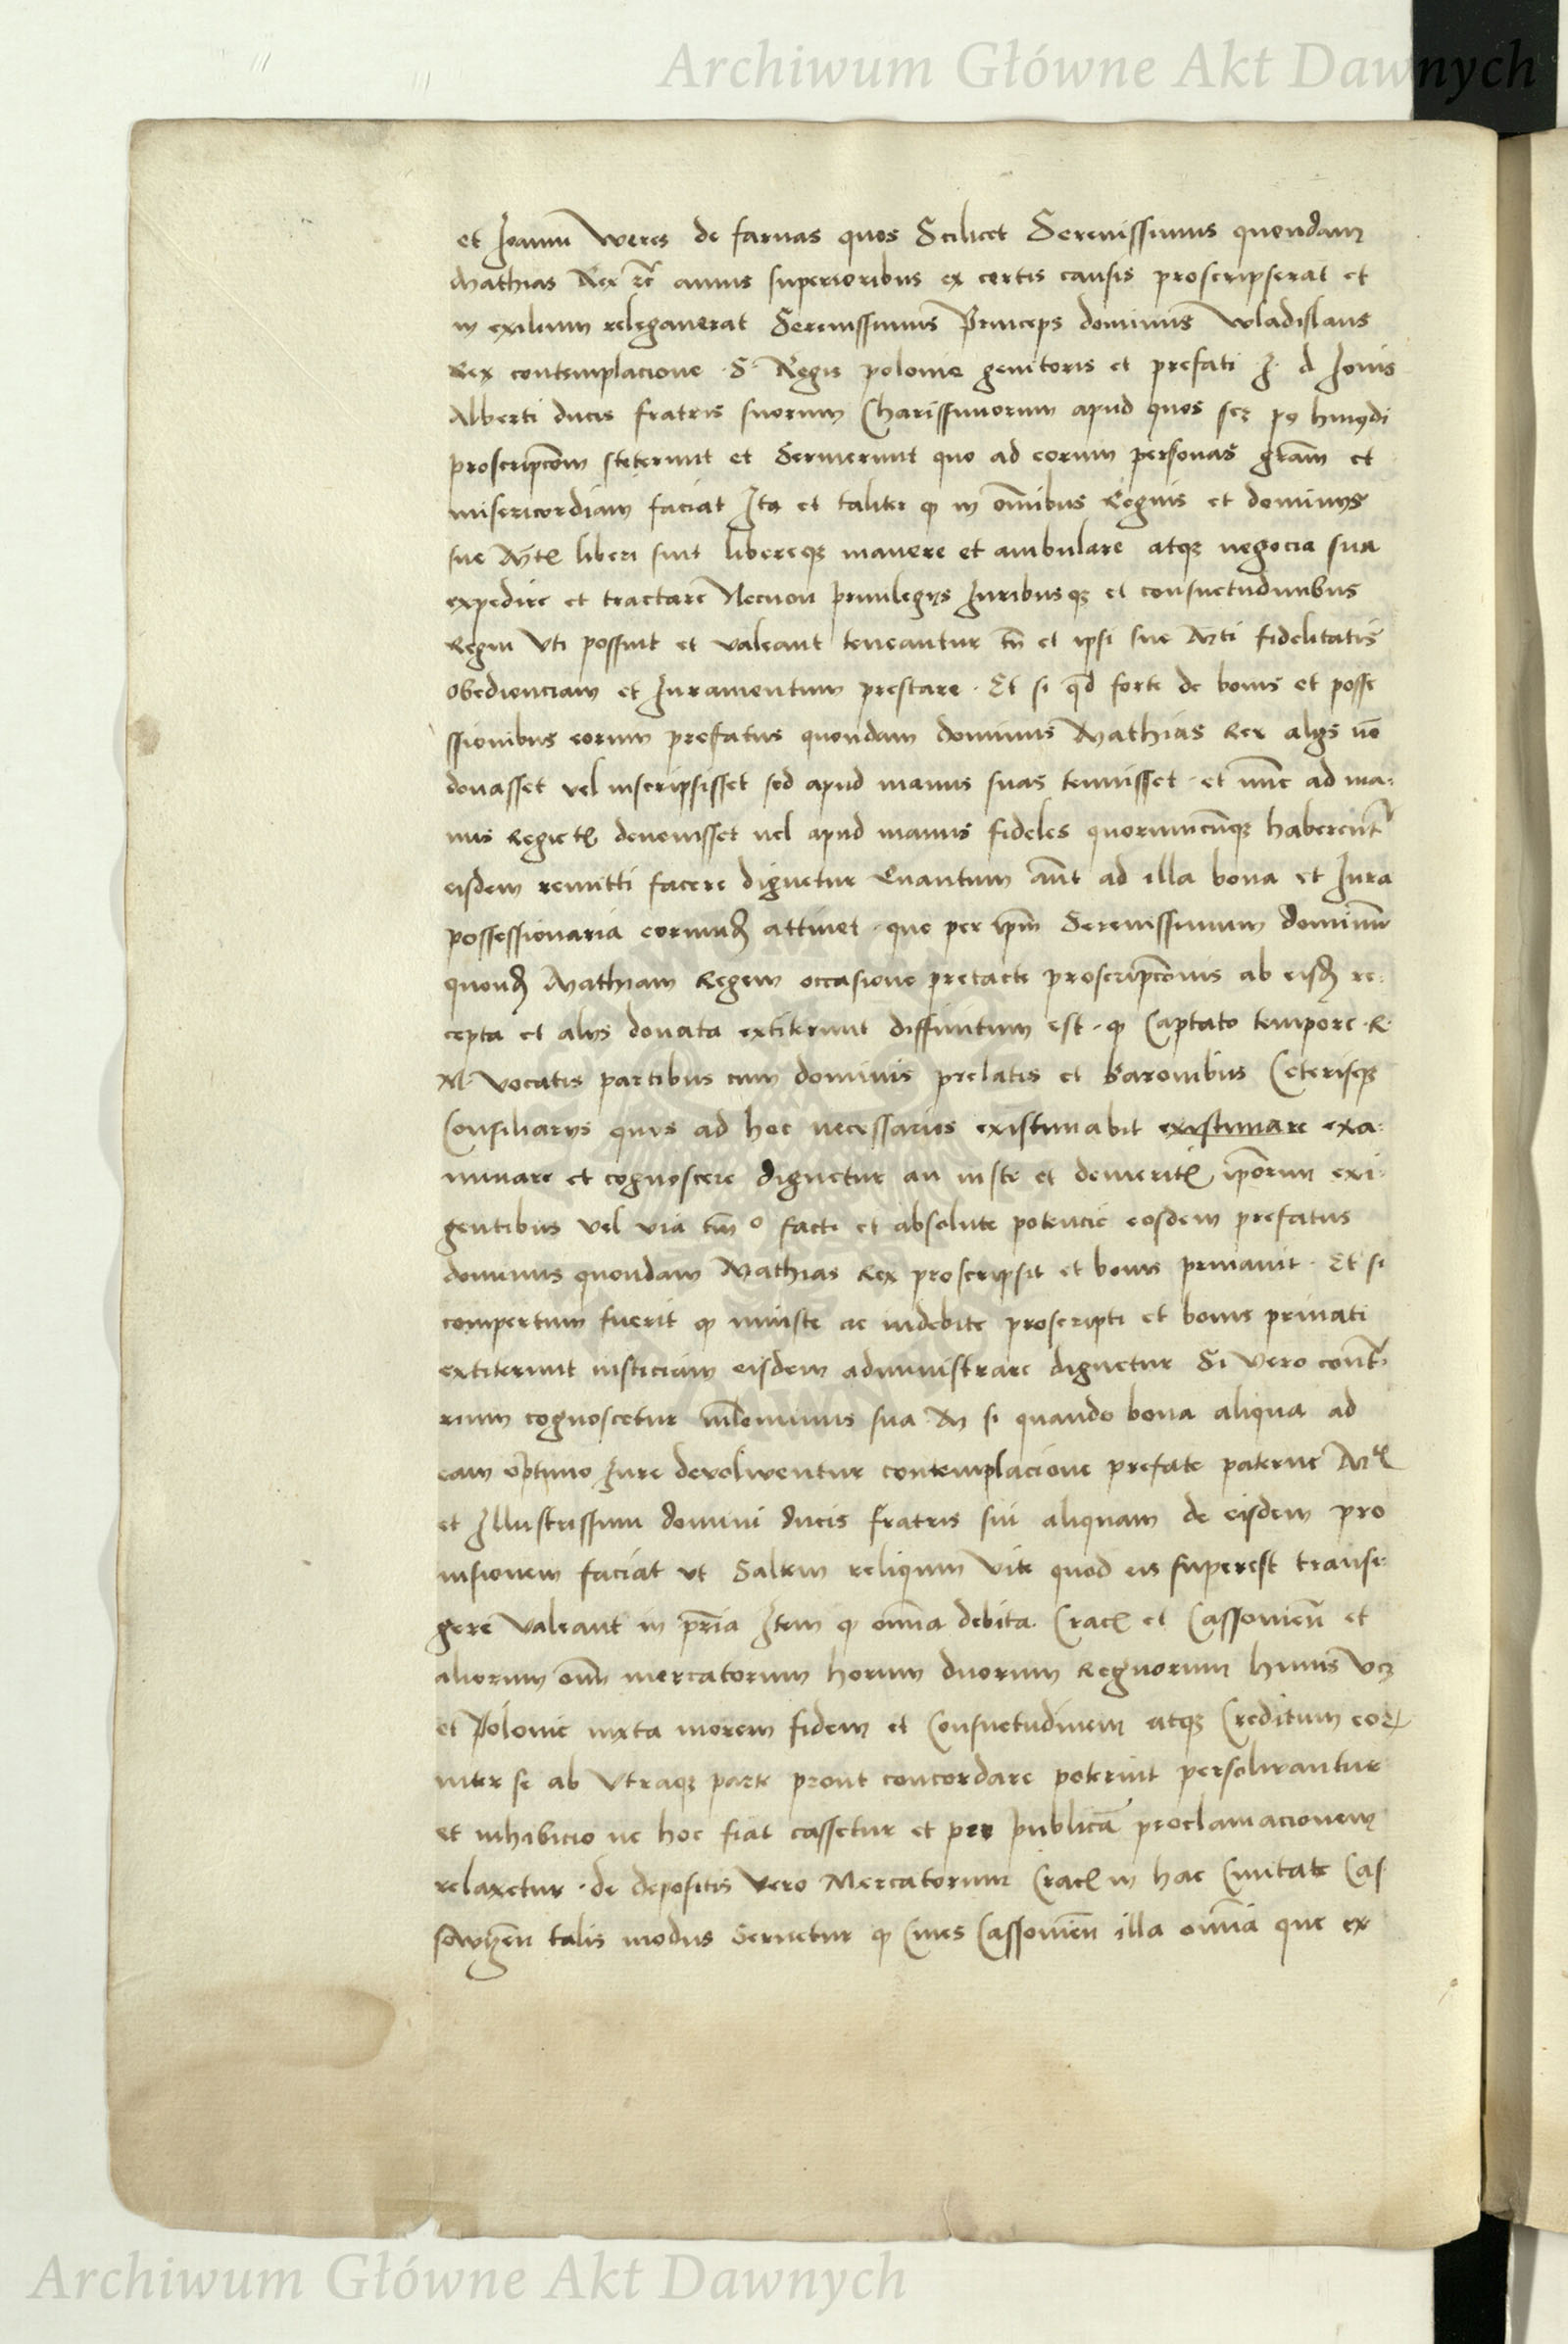 Archiwum Główne Akt Dawnych
et Joannū weres de farnas quos Scilicet Serenissimus quondam
Mathias Rex ꝛc̄ annis superioribus ex certis causis proscripserat et
in exilium relegauerat Serenissimus Princeps dominus wladislaus
Rex contemplacione S. Regis polonie genitoris et prefati J. d. Jonis
Alberti ducis fratris suorum Charissimorum apud quos scꝫ huiꝰdi
proscripcōm steterunt et Seruierunt quo ad eorum personas grām et
misericordiam faciat Ita et taliter ꝙ in om̄ibus Regnis et dominijs
sue Mtꝭ liberi sint libereqꝫ manere et ambulare atqꝫ negocia sua
expedire et tractare Necnon priuilegijs Juribusqꝫ et consuetudinibus
Regni Vti possint et valeant teneantur tn̄ et ipsi sue Mti fidelitatis
obedienciam et Juramentum prestare. Et si qd̄ forte de bonis et posse
ssionibus eorum prefatus quondam dominus Mathias Rex alijs nō
donasset vel inscripsisset sed apud manus suas tenuisset. et nūc ad ma:
nus Regie tꝭ deuenisset uel apud manus fideles quorumcūqꝫ haberent᷑
eisdem remitti facere dignetur Quantum aūt ad illa bona et Jura
possessionaria eorundꝫ attinet. que per ip̄m Serenissimum dominū
quondꝫ Mathiam Regem occasione pretacte proscripcōnis ab eisdꝫ re:
cepta et alijs donata extiterunt diffinitum est. ꝙ Captato tempore R.
M. vocatis partibus cum dominis prelatis et Baronibus Ceterisqꝫ
Consiliarijs quos ad hoc necessarios existimabit existimare exa:
minare et cognoscere dignetur an iuste et demeritꝭ ip̄orum exi:
gentibus vel via tm̄ o facti et absolute potencie eosdem prefatus
dominus quondam Mathias Rex proscripsit et bonis priuauit. Et si
compertum fuerit ꝙ iniuste ac indebite proscripti et bonis priuati
extiterunt iusticiam eisdem administrare dignetur Si vero contr̄
rium cognoscetur nīlominus sua M si quando bona aliqua ad
eam optimo Jure devolwentur contemplacione prefate paterne Mtꝭ
et Illustrissimi domini ducis fratris sui aliquam de eisdem pro
uisionem faciat vt Saltem reliquum vite quod eis superest transi:
gere valeant in pr̄ia Item ꝙ om̄ia debita Cracꝭ et Cassouien̄ et
aliorum om̄i mercatorum horum duorum Regnorum huius vcꝫ
et Polonie iuxta morem fidem et Consuetudinem atqꝫ Creditum eoꝝ
inter se ab vtraqꝫ parte prout concordare poterint persolwantur
et inhibicio ne hoc fiat cassetur et per publicā proclamacionem
relaxetur. de depositis vero Mercatorum Cracꝭ in hac Ciuitate Cas
sowien̄ talis modus Seruetur ꝙ Ciues Cassouien̄ illa om̄ia que ex
Archiwum Główne Akt Dawnych